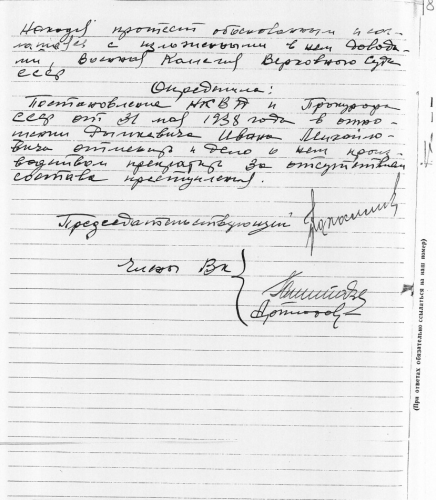 Находя протест обоснованным и сог-
лашаясь с изложенными в нем довода-
ми, Военная Коллегия Верховного Суда
СССР
Определила:
Постановление НКВД и Прокурора
СССР от 31 мая 1938 года в отно-
шении Ивана Михайло-
вича отменить и дело о нем произ-
водством прекратить за отсутствием
состава преступления.
Председательствующий
Члены Вк
(При ответах обязательно ссылаться на наш номер)